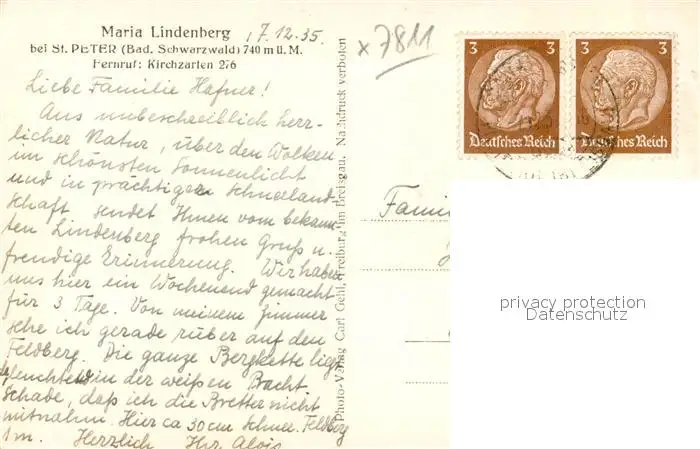 Maria Lindenberg
17.12.35.
x 7811
bei St. PETER (Bad. Schwarzwald) 740 m ü. M.
Fernruf: Kirchzarten 276
Liebe Familie Hafner!
Aus unbeschreiblich herr-
licher Natur, über den Wolken
im schönsten Sonnenlicht
und in prächtiger Schneeland-
schaft sendet Ihnen vom bekann-
ten Lindenberg frohen Gruß u.
freudige Erinnerung. Wir haben
uns hier ein Wochenend gemacht
für 3 Tage. Von meinem Zimmer
sehe ich gerade rüber auf den
Feldberg. Die ganze Bergkette liegt
leuchtend in der weißen Pracht.
Schade, daß ich die Bretter nicht
mitnahm. Hier ca 30 cm Schnee. Feldberg
1 m. Herzlich Ihr Alois
Photo-Verlag Carl Gehl, Freiburg im Breisgau. Nachdruck verboten
3 3
Deutsches Reich
3 3
Deutsches Reich
Famil
privacy protection
Datenschutz